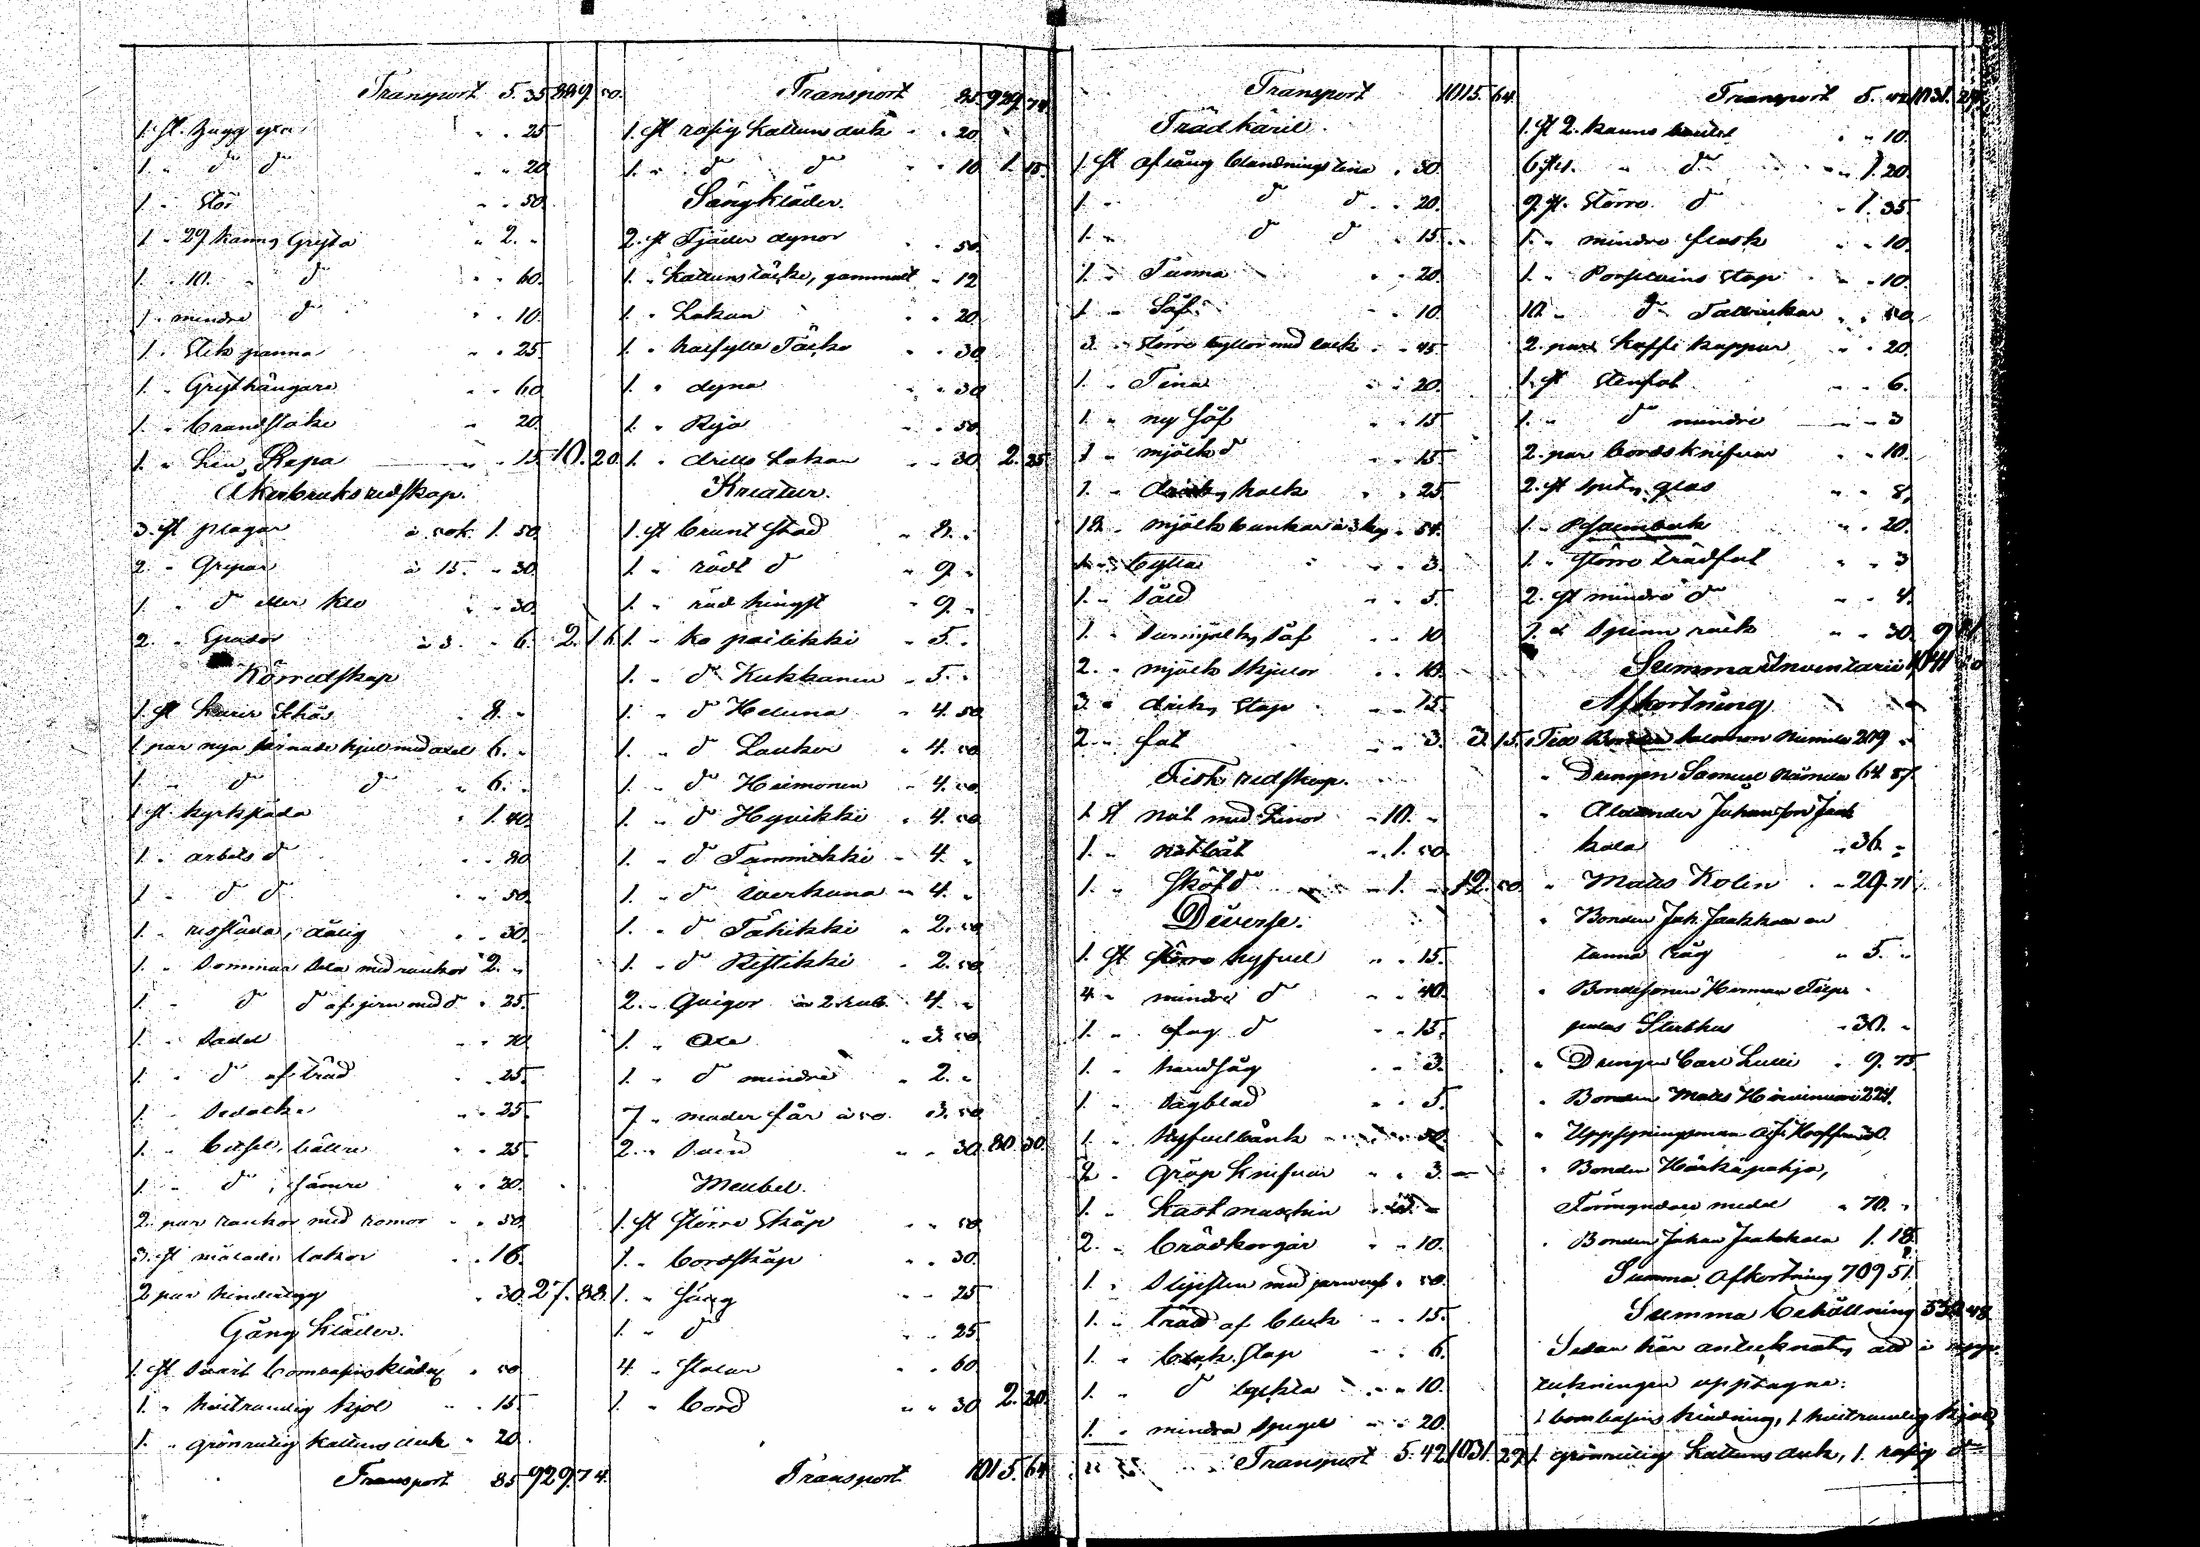 Transport 5. 35 889 50.
1. st. Tygg yxa " " 25
1. " d:o d:o " " 20
1 " Stör " " 50.
1 " 29 kanns Gryta " 2. "
1. " 10. " d:o " " 60.
1 " mindre d:o " " 10.
1. " Stek panna " " 25
1. " Grythängare " " 60
1. " brandstake " 20.
1. " Lin Repa " " 15 10. 20
Åkerbruks redskap.
3. st plogar à 50k. 1. 50.
2 " Gripar à 15. " 30.
1. " d:o eller klo " " 30.
2. " Spador à 3. " 6. 2. 16
Körredskap
1. st Kärr Schäs " 8. "
1 par nya hjul med axel 6. "
1. " d:o d:o " 6. "
1 st. kyrksläda " 1. 40.
1. " arbets d:o " " 80
1 " d:o d:o " " 50.
1. " dålig " " 30.
1. " Sommar sela med rankor 2. "
1. " d:o d:o af jern med d:o " 25.
1. " Sadel " " 70.
1. " d:o af träd " " 25.
1. " " " 25.
1. " betsel, bättre " " 25.
1. " d:o, sämre " " 20.
2. par rankor med romor " " 50.
3. st målade lakor " " 16.
2 par " 30. 27. 88.
Gång Kläder.
1. st svart bombasins klädng " 50
1. " hvitrandig kjol " " 15.
1. " grönrutig kattuns duk " 20
Transport 85 929. 74.
Transport 85. 929. 74
1. st rosig kattuns duk " 20
1. " d:o d:o " " 10 1. 15.
Sängkläder.
2. st Fjäder dynor " " 50.
1. " Kattunstäcke, gammalt " 12
1. " Lakan " " 20.
1. " Täcke " " 30
1. " dyna " " 30
1. " Ryja " " 50
1. " drills Lakan " " 30 2. 25
Kreatur.
1. st brunt Stod " 8. "
1. " rödt d:o " 9 "
1. " röd hingst " 9. "
1. " ko " 5. "
1. " d:o Kukkanen " 5. "
1. " d:o Heluna " 4. 50
1. " d:o Lauker " 4. 50
1. " d:o Heimonen " 4. 50
1. " d:o Hyvikki " 4. 50
1. " d:o Tammikki " 4. "
1. " d:o Werkuna " 4. "
1. " d:o Tähikki " 2. 50
1. " d:o Ristikki " 2. 50
2. " Qvigor à 2 rub. 4. "
1. " Oxe " 3. 50
1. " d:o mindre " 2. "
7 " moder får à 50. 3. 50
2. " Svin " " 30 80 30.
Meubel.
1. st större Skåp " " 50
1. " bordskåp " " 30.
1. " Säng " " 25
1. " d:o " " 25
4 " Stolar " " 60
1. " bord " " 30 2. 20.
Transport 1015. 64
Transport 1015. 64.
Trädkäril.
1. st aflång blandnings tina " 50.
1. " d:o d:o " " 20.
1. " d:o d:o " 15.
1. " Tunna " " 20.
1 " Såf " " 10.
3. " större byttor med lock " " 45
1. " Tina " " 20.
1. " ny Såf " " 15
1 " mjölk d:o " " 15.
1. " dricks halk " " 25
18 " mjölk bunkar à 3 kop " 54.
1. " bytta " " 3.
1. " Såld " " 5.
1. " surmjölks såf " " 10
2. " mjölk skjulor " " 10.
3. " dricks stop " " 15
2. " fat " " 3. 3. 15.
Fisk redskap.
1 st not med Linor " 10. "
1. " notbåt " 1. 50.
1. " d:o " 1. " 12. 50.
Diverse.
1. st större hyfvel " " 15.
4 " mindre d:o " " 40.
1. " fog d:o " " 15.
1. " handsåg " " 3.
1. " sågblad " " 5.
1. " Hyfvelbänk " " 50.
2 " gröp knifvar " " 3.
1. " Kast maschin
2. " brödkorgar " " 10.
1. " Slipsten med " 50.
1. " tråd af bleck " " 15.
1. " bleck Stop " " 6.
1. " d:o lyckta " " 10.
1. " mindre spegel " " 20.
Transport 5. 42 1031. 29
Transport 5. 42 1031. 29
1. st 2. kanns boutel " " 10.
6. st 1. " d:o " 1. 20.
9 st. större d:o " 1. 35.
1. " mindre flask " " 10.
1. " Porslains Stop " " 10.
10 " d:o Tallrickar " " 50.
2. par Kaffe koppar " " 20.
1. st stenfat " " 6.
1. " d:o mindre " " 3
2. par bords knifvar " " 10.
2. st spets glas " " 8.
1. " Psalmbok " " 20.
1. " större trädfat " " 3
2. st mindre d:o " " 4.
1. st Spinn råck " " 30. 9
Summa Inventarii 1041 50
Afkortning
Till Bonden Salomon 219 "
" Drengen Samuel 64 87.
" Alexander Johansson Jaak
kola " 36. "
" Matts Kolen " 29. 71
" Bonden Joh. Jaakkola en
tunna råg " 5. "
" Bondesonen Herman
Sterbhus " 30. "
" Drengen Carl Lulli " 9. 75
" Bonden Matts 221.
" Uppsyningsman 30.
" Bonden Härkäpohja,
Förmyndare medel " 70. "
" Bonden Johan Jaakkola 1. 18
Summa Afkortning 709 51
Summa behållning 331 48
Sedan här antecknats, att i upp-
teckningen upptagna:
1 bombasins klädning, 1 hvitrandig kjol,
1. grönrutig Kattuns duk, 1. rosig d:o